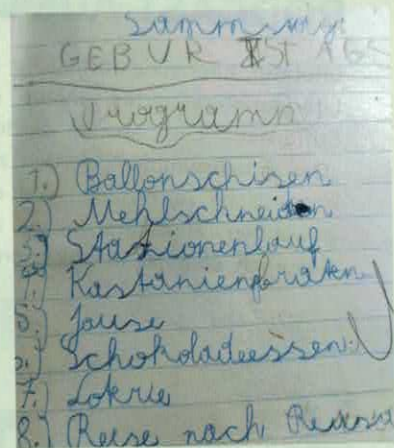 GEBURTSTAGS
Programm
1.) Ballonschisen
2.) Mehlschneiden
3.) Stationenlauf
4.) Kastanienbraten
5.) Jause
6.) Schokoladeessen
7.)
8.) Reise nach